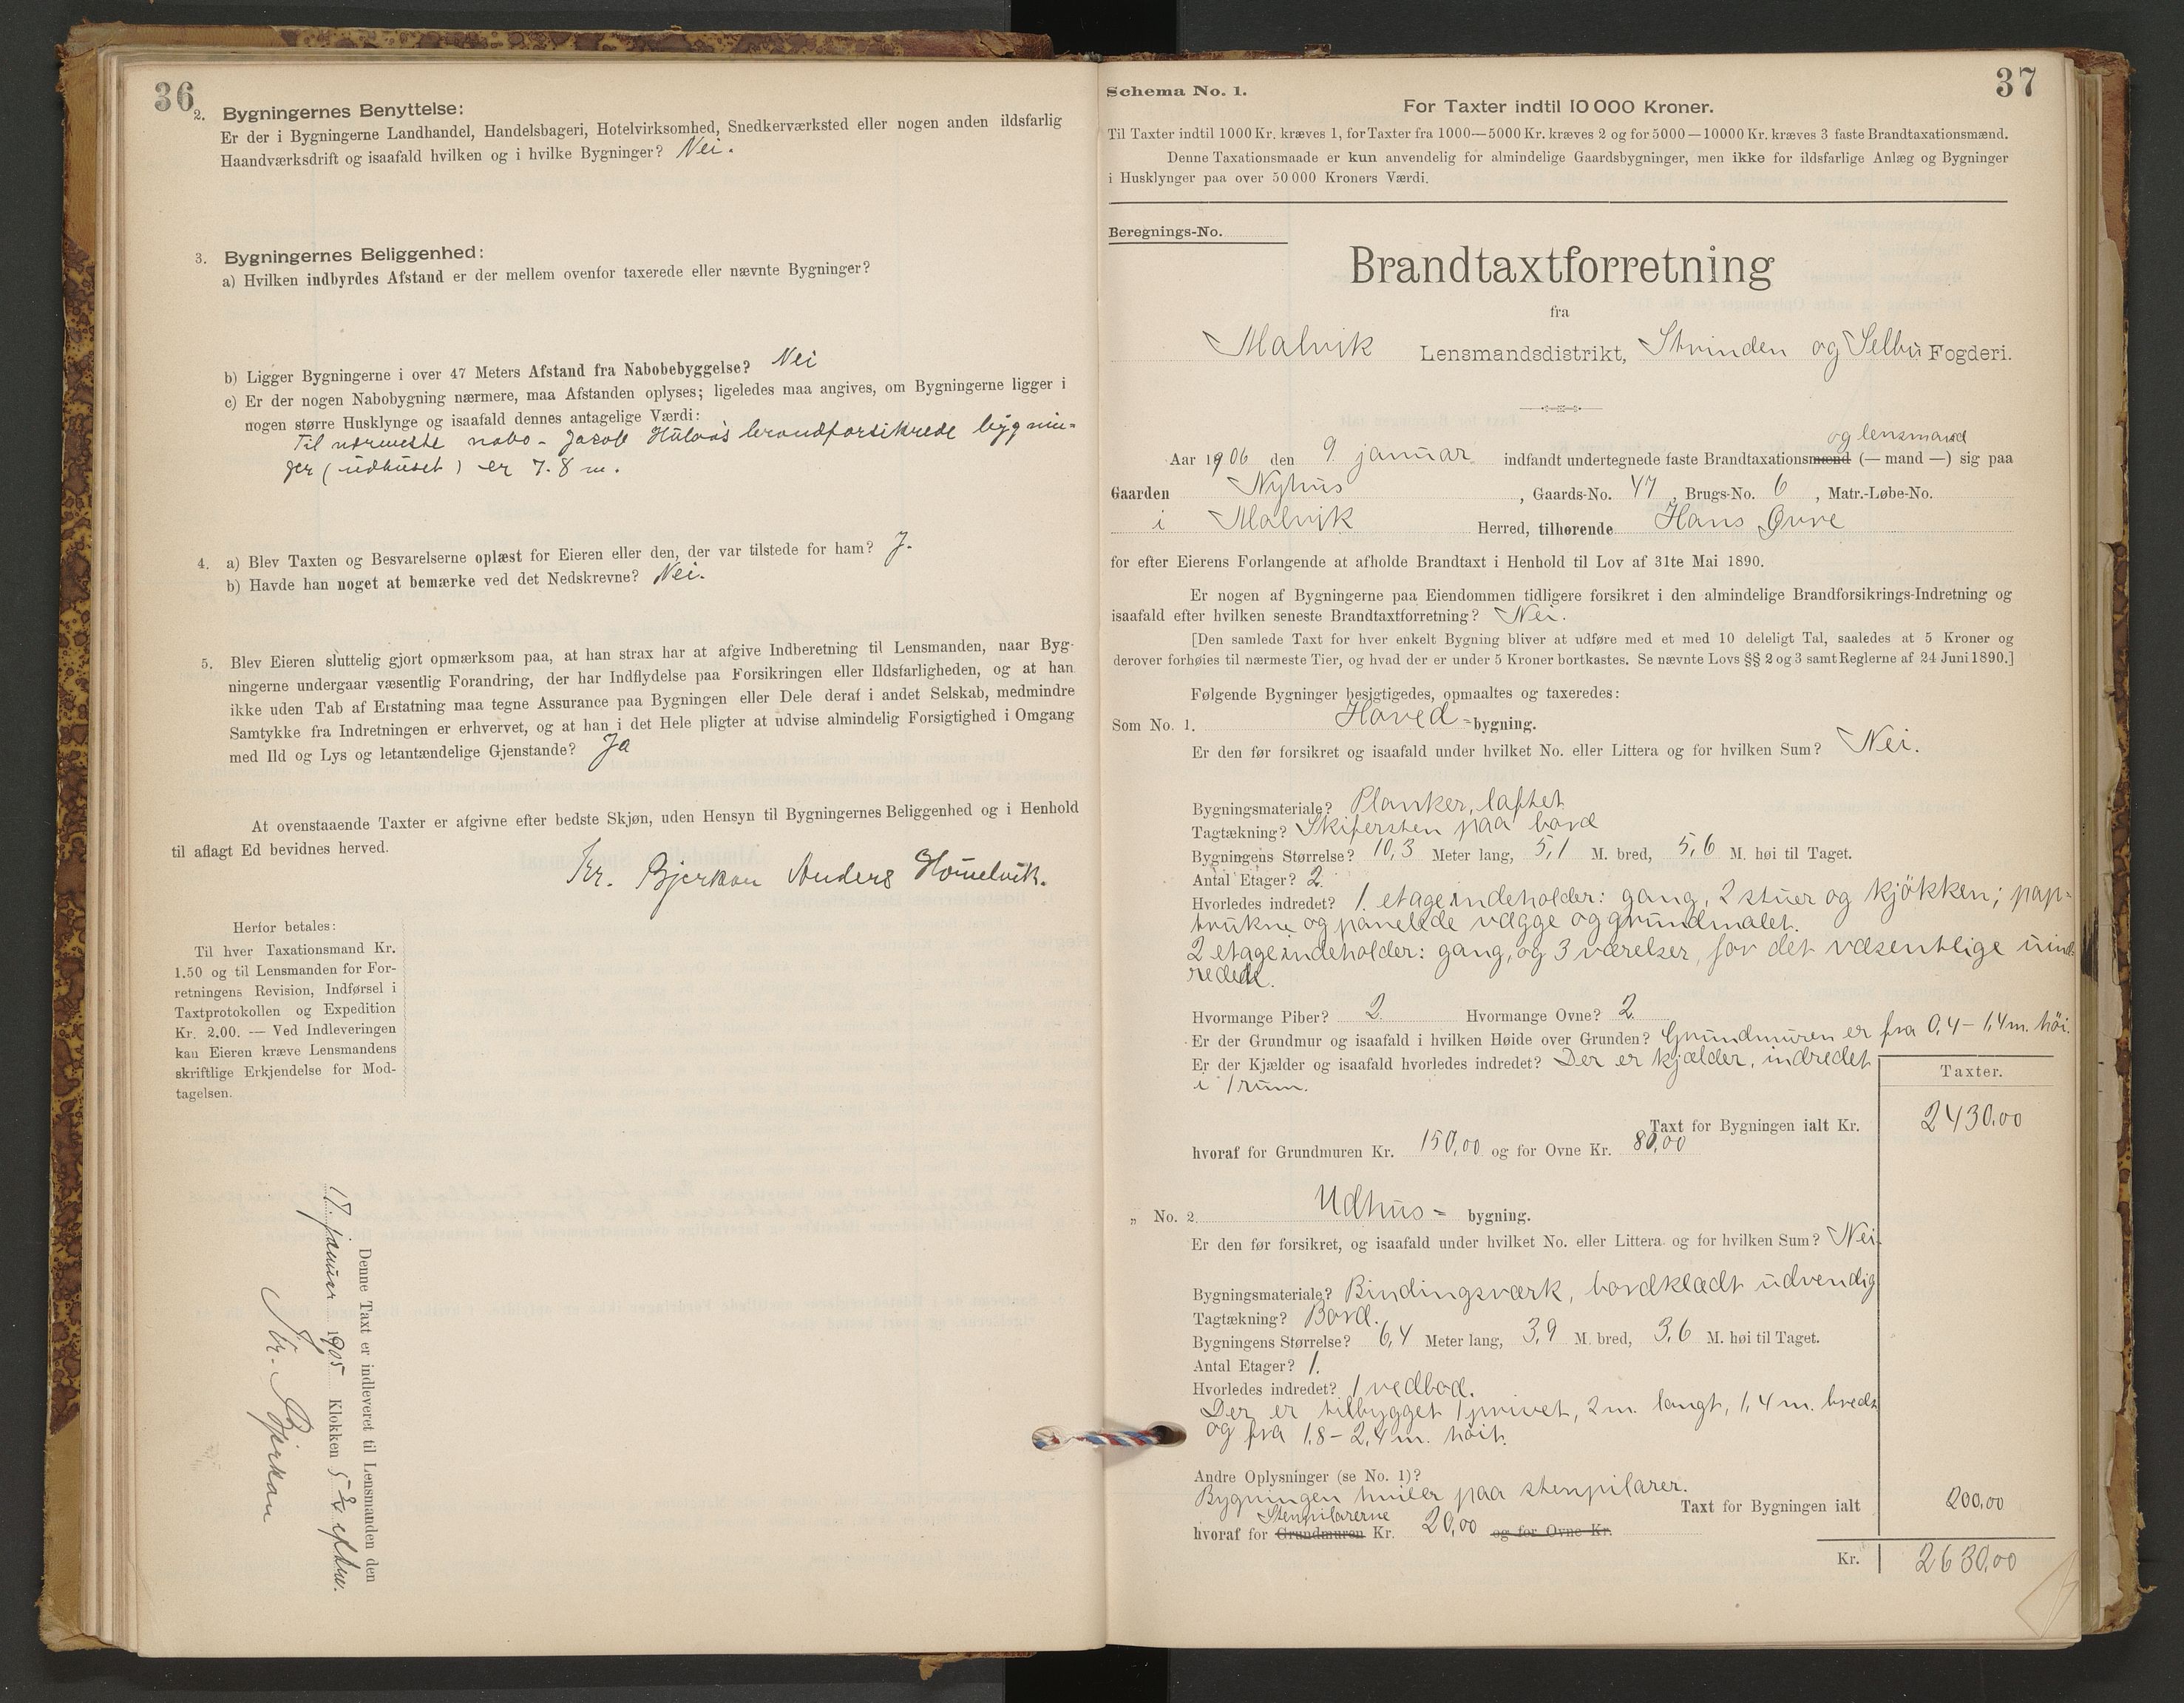 36
2. Bygningernes Benyttelse:
Er der i Bygningerne Landhandel, Handelsbageri, Hotelvirksomhed, Snedkerværksted eller nogen anden ildsfarlig
Haandværksdrift og isaafald hvilken og i hvilke Bygninger? Nei.
3. Bygningernes Beliggenhed:
a) Hvilken indbyrdes Afstand er der mellem ovenfor taxerede eller nævnte Bygninger?
b) Ligger Bygningerne i over 47 Meters Afstand fra Nabobebyggelse? Nei
c) Er der nogen Nabobygning nærmere, maa Afstanden oplyses; ligeledes maa angives, om Bygningerne ligger i
nogen større Husklynge og isaafald dennes antagelige Værdi:
Til nærmeste nabo - Jacob brandforsikrede bygnin-
ger (udhuset) er 7.8 m.
4. a) Blev Taxten og Besvarelserne oplæst for Eieren eller den, der var tilstede for ham? J.
b) Havde han noget at bemærke ved det Nedskrevne? Nei.
5. Blev Eieren sluttelig gjort opmærksom paa, at han strax har at afgive Indberetning til Lensmanden, naar Byg-
ningerne undergaar væsentlig Forandring, der har Indflydelse paa Forsikringen eller Ildsfarligheden, og at han
ikke uden Tab af Erstatning maa tegne Assurance paa Bygningen eller Dele deraf i andet Selskab, medmindre
Samtykke fra Indretningen er erhvervet, og at han i det Hele pligter at udvise almindelig Forsigtighed i Omgang
med Ild og Lys og letantændelige Gjenstande? Ja
At ovenstaaende Taxter er afgivne efter bedste Skjøn, uden Hensyn til Bygningernes Beliggenhed og i Henhold
til aflagt Ed bevidnes herved.
Kr. Bjerkan Anders Hommelvik.
Herfor betales:
Til hver Taxationsmand Kr.
1.50 og til Lensmanden for For-
retningens Revision, Indførsel i
Taxtprotokollen og Expedition
Kr. 2.00. — Ved Indleveringen
kan Eieren kræve Lensmandens
skriftlige Erkjendelse for Mod-
tagelsen.
Denne Taxt er indleveret til Lensmanden den
17. januar 1905 Klokken 5
Kr. Bjerkan
37
Schema No. 1.
For Taxter indtil 10 000 Kroner.
Til Taxter indtil 1000 Kr. kræves 1, for Taxter fra 1000—5000 Kr. kræves 2 og for 5000—10000 Kr. kræves 3 faste Brandtaxationsmænd.
Denne Taxationsmaade er kun anvendelig for almindelige Gaardsbygninger, men ikke for ildsfarlige Anlæg og Bygninger
i Husklynger paa over 50 000 Kroners Værdi.
Beregnings-No.
Brandtaxtforretning
fra
Malvik Lensmandsdistrikt, Strinden og Selbu Fogderi.
og lensmand
Aar 1906 den 9. januar indfandt undertegnede faste Brandtaxationsmænd (— mand —) sig paa
Gaarden Nyhus, Gaards-No. 47, Brugs-No. 6, Matr.-Løbe-No.
i Malvik Herred, tilhørende Hans Øvre
for efter Eierens Forlangende at afholde Brandtaxt i Henhold til Lov af 31te Mai 1890.
Er nogen af Bygningerne paa Eiendommen tidligere forsikret i den almindelige Brandforsikrings-Indretning og
isaafald efter hvilken seneste Brandtaxtforretning? Nei.
[Den samlede Taxt for hver enkelt Bygning bliver at udføre med et med 10 deleligt Tal, saaledes at 5 Kroner og
derover forhøies til nærmeste Tier, og hvad der er under 5 Kroner bortkastes. Se nævnte Lovs §§ 2 og 3 samt Reglerne af 24 Juni 1890.]
Følgende Bygninger besigtigedes, opmaaltes og taxeredes:
Som No. 1. Hoved-bygning.
Er den før forsikret og isaafald under hvilket No. eller Littera og for hvilken Sum? Nei.
Bygningsmateriale? Planker, laftet
Tagtækning? Skifersten paa bord
Bygningens Størrelse? 10,3 Meter lang, 5,1 M. bred, 5,6 M. høi til Taget.
Antal Etager? 2.
Hvorledes indredet? 1. etage indeholder: gang, 2 stuer og kjökken; pap-
trukne og panelede vægge og grundmalet.
2 etage indeholder: gang, og 3 værelser, for det væsentlige uind-
redede.
Hvormange Piber? 2. Hvormange Ovne? 2.
Er der Grundmur og isaafald i hvilken Høide over Grunden? Grundmuren er fra 0,4 - 1,4 m. höi.
Er der Kjælder og isaafald hvorledes indredet? Der er kjælder, indredet
i 1 rum.
Taxter.
Taxt for Bygningen ialt Kr. 2430,00
hvoraf for Grundmuren Kr. 150,00 og for Ovne Kr. 80,00
„ No. 2. Udhus- bygning.
Er den før forsikret, og isaafald under hvilket No. eller Littera og for hvilken Sum? Nei.
Bygningsmateriale? Bindingsværk, bordklædt udvendig
Tagtækning? Bord.
Bygningens Størrelse? 6,4 Meter lang, 3,9 M. bred, 3,6 M. høi til Taget.
Antal Etager? 1.
Hvorledes indredet? 1 vedbod.
Der er tilbygget 1 privet, 2 m. langt, 1,4 m. bredt
og fra 1,8 - 2,4 m. höit.
Andre Oplysninger (se No. 1)?
Bygningen hviler paa stenpilarer.
Taxt for Bygningen ialt 200,00
Stenpilarerne
hvoraf for Grundmuren Kr. 20,00 og for Ovne Kr.
Kr. 2630,00